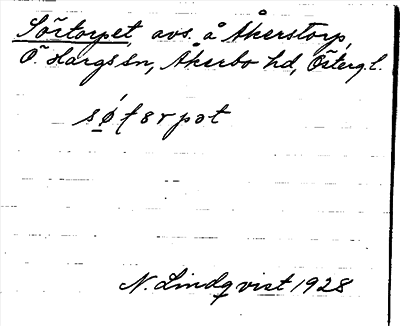 Sörtorpet, avs. å Åkerstorp,
Ö. Hargs sn, Åkerbo hd, Österg. l.
N. Lindqvist 1928